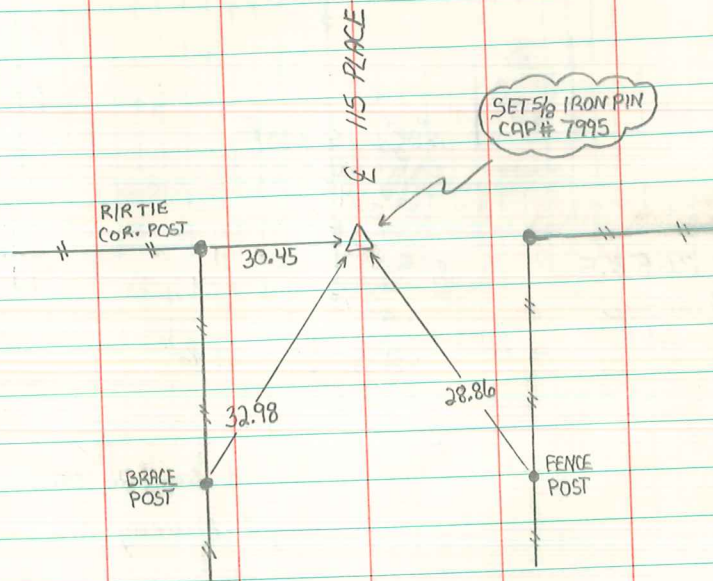 ℄ 115 PLACE
SET 5/8 IRON PIN
CAP # 7995
R/R TIE
COR. POST
30.45
32.98
28.86
BRACE
POST
FENCE
POST